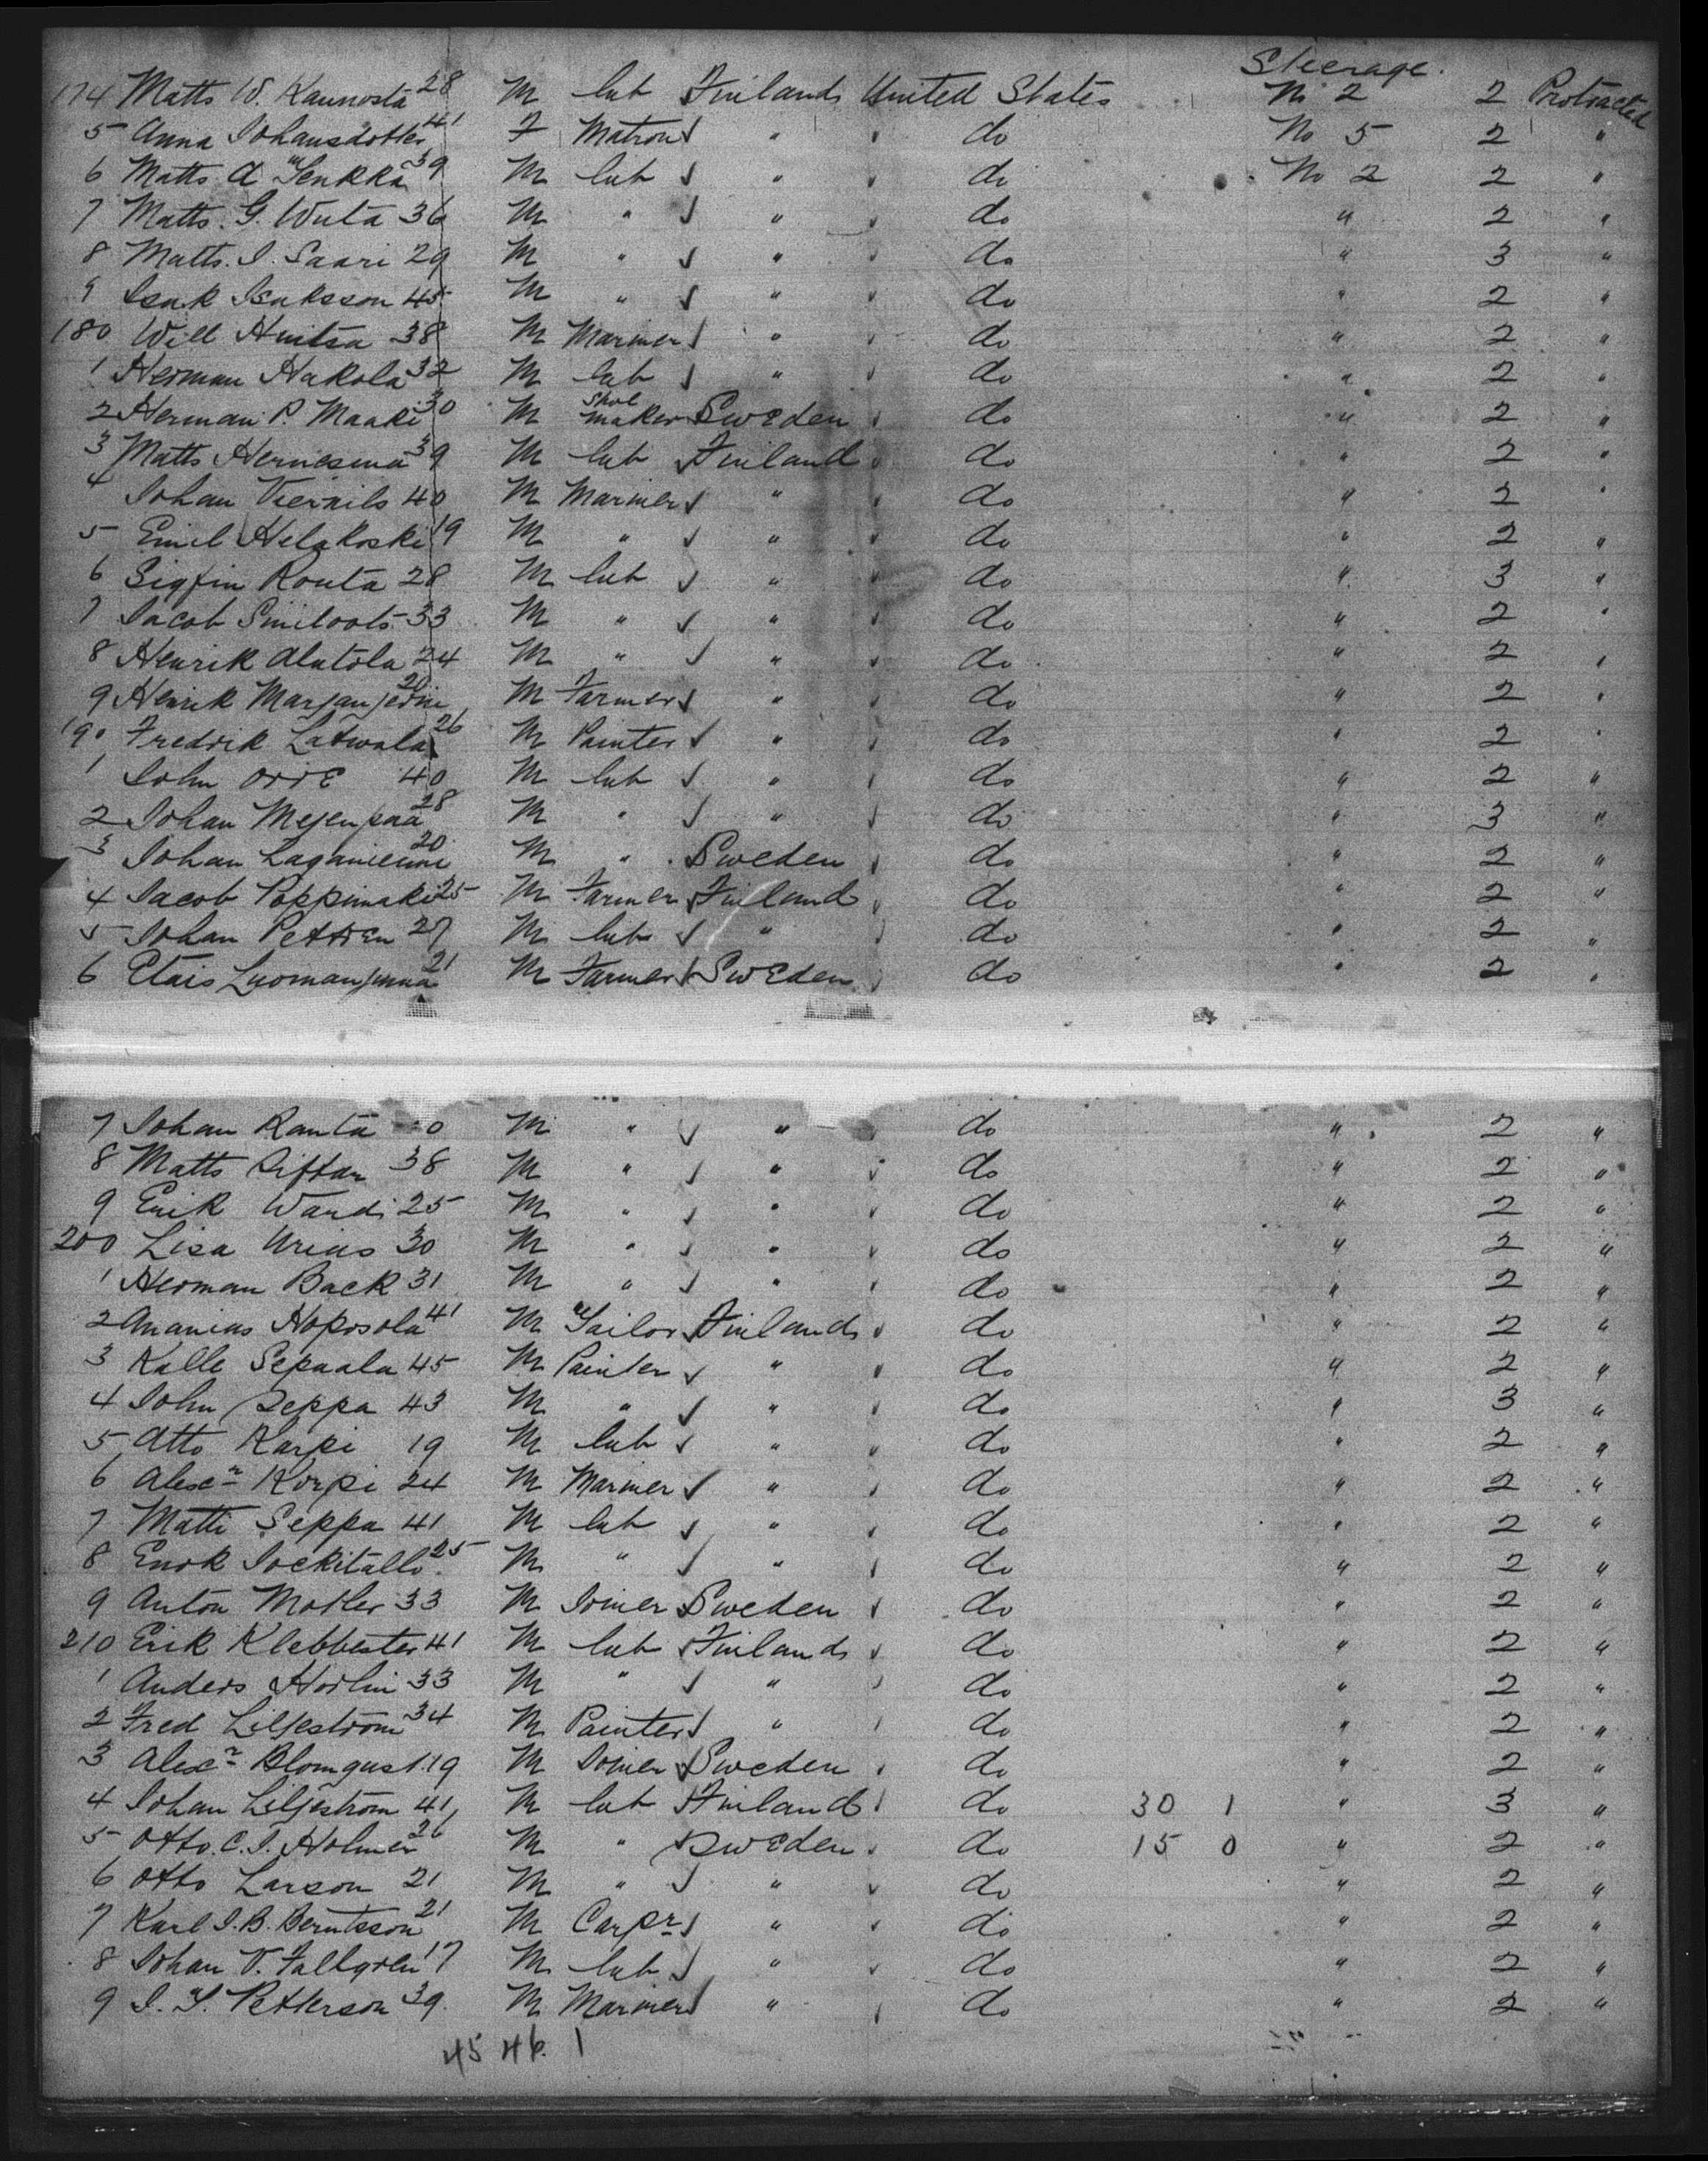 Steerage.
174 Matts W. Kaunosta 28 M lab Finland United States No 2 2 Protracted
5 Anna Johansdotter 41 F Matron " do No 5 2 "
6 Matts A Tenkka 39 M lab " do No 2 2 "
7 Matts. G. Wuta 36 M " " do " 2 "
8 Matts. I. Saari 29 M " " do " 3 "
9 Isak Isaksson 45 M " " do " 2 "
180 Will Huitsa 38 M Mariner " do " 2 "
1 Herman Hakola 32 M lab " do " 2 "
2 Herman P. Maaki 30 M Shoe maker Sweden do " 2 "
3 Matts Hernesma 39 M lab Finland do " 2 "
4 Johan 40 M Mariner " do " 2 "
5 Emil Helakoski 19 M " " do " 2 "
6 Sigfin Routa 28 M lab " do " 3 "
7 Jacob 33 M " " do " 2 "
8 Henrik Alatola 24 M " " do " 2 "
9 Henrik 20 M Farmer " do " 2 "
190 Fredrik Latwala 26 M Painter " do " 2 "
1 John Orre 40 M lab " do " 2 "
2 Johan Mejenpaa 28 M " " do " 3 "
3 Johan 20 M " Sweden do " 2 "
4 Jacob Poppimaki 25 M Farmer Finland do " 2 "
5 Johan Pettren 27 M lab " do " 2 "
6 21 M Farmer Sweden do " 2 "
7 Johan Ranta 0 M " " do " 2 "
8 Matts 38 M " " do " 2 "
9 Erik Wandi 25 M " " do " 2 "
200 Lisa Urias 30 M " " do " 2 "
1 Herman Back 31 M " " do " 2 "
2 Ananias Hoposola 41 M Tailor Finland do " 2 "
3 Kalle Sepaala 45 M Painter " do " 2 "
4 John Seppa 43 M " " do " 3 "
5 Atto Karpi 19 M lab " do " 2 "
6 Alexr Korpi 24 M Mariner " do " 2 "
7 Matti Seppa 41 M lab " do " 2 "
8 Enok Jockitallo 25 M " " do " 2 "
9 Anton Mosler 33 M Joiner Sweden do " 2 "
210 Erik Klebbester 41 M lab Finland do " 2 "
1 Anders Horlin 33 M " " do " 2 "
2 Fred Liljestrom 34 M Painter " do " 2 "
3 Alexr Blomqust 19 M Joiner Sweden do " 2 "
4 Johan Liljestrom 41 M lab Finland do 30 1 " 3 "
5 Otto. C. J. Holmer 26 M " Sweden do 15 0 " 2 "
6 Otto Larson 21 M " " do " 2 "
7 Karl J. B. Berntsson 21 M Carpr " do " 2 "
8 Johan V. Fallgren 17 M lab " do " 2 "
9 J. T. Petterson 39 M Mariner " do " 2 "
45 46. 1